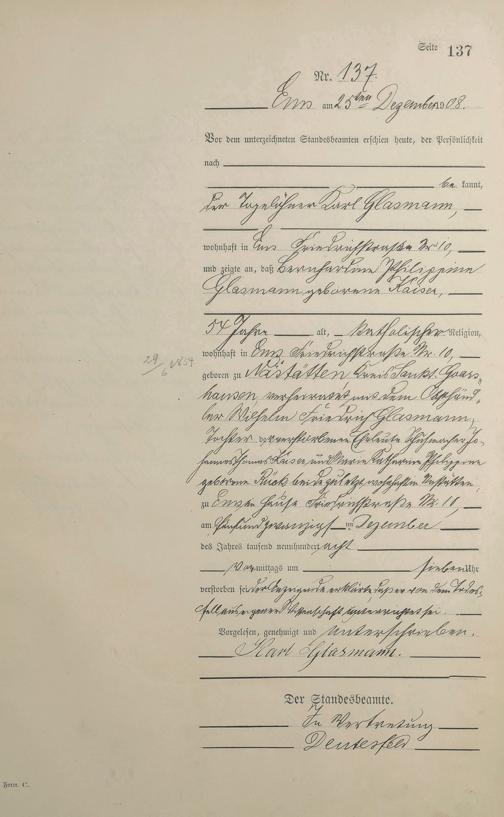 Seite 137
Nr. 137.
Ems am 25ten Dezember 1908.
Vor dem unterzeichneten Standesbeamten erschien heute, der Persönlichkeit
nach
be kannt,
der Tagelöhner Karl Glasmann,
wohnhaft in Ems Friedrichstraße Nr 10,
und zeigte an, daß Philippine
Glasmann geborene Kaiser,
54 Jahre alt, katholischer Religion,
wohnhaft in Ems, Friedrichstraße Nr. 10,
geboren zu Nastätten Kreis Sankt Goars-
hausen, verheiratet mit dem
Wilhelm Friedrich Glasmann,
Tochter der verstorbenen Eheleute Schuhmacher Jo-
Kaiser und Marie Katharine Philippine
geborene beide zuletzt wohnhaft in Nastätten,
zu Ems im Hause Friedrichstraße Nr. 10,
am fünfundzwanzigsten Dezember
des Jahres tausend neunhundert acht
Vormittags um sieben Uhr
verstorben sei, der Anzeigende erklärte, daß er von dem Todes-
falle aus eigener Wissenschaft unterrichtet sei.
Vorgelesen, genehmigt und unterschrieben.
Karl Glasmann.
Der Standesbeamte.
In Vertretung
Form. C.